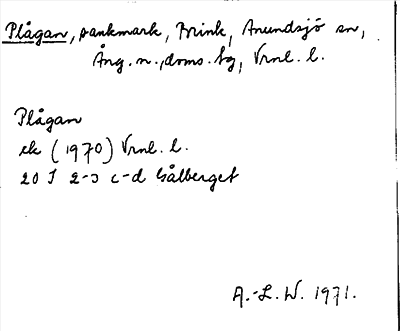 Plågan, sankmark, Brink, Anundsjö sn,
Ång. n., doms. bg, Vrnl. l.
Plågan
ek (1970) Vrnl. l.
20 I 2-3 c-d Gålberget
A.-L.W. 1971.